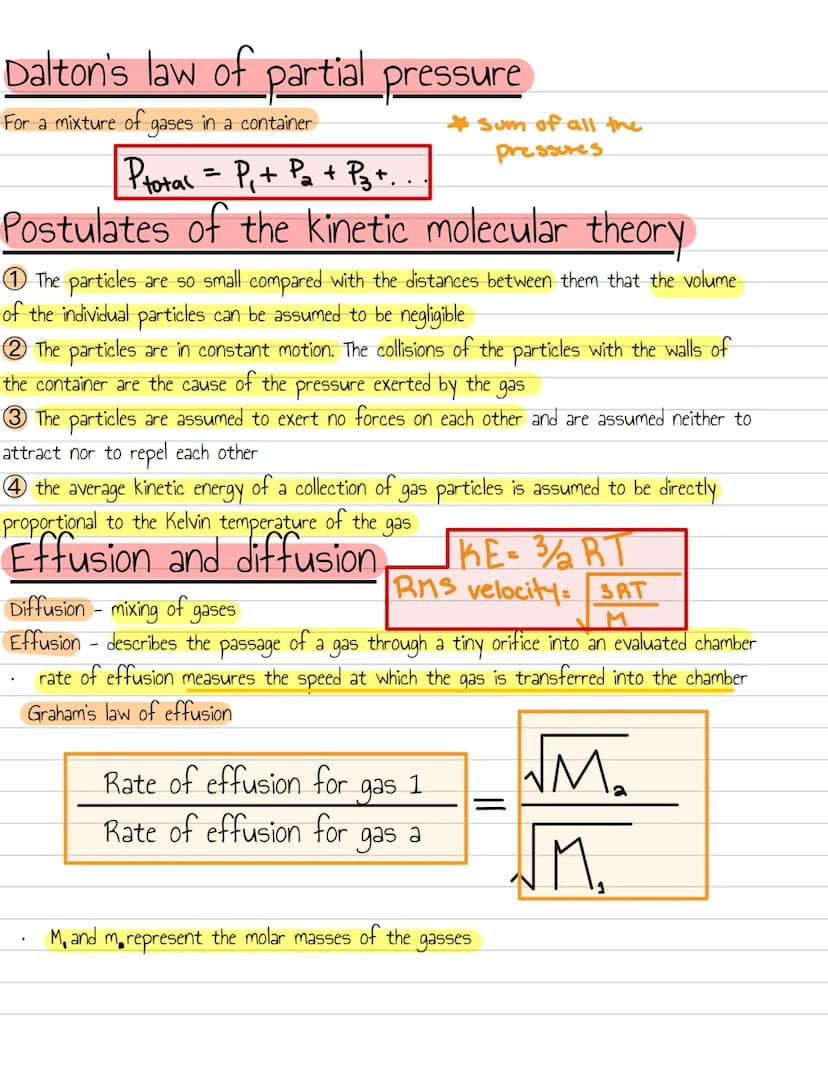 Dalton's law of partial pressure
For a mixture of gases in a container
* sum of all the
pressures
P total = P₁ + P₂ + P₃ + . . .
Postulates of the kinetic molecular theory
① The particles are so small compared with the distances between them that the volume
of the individual particles can be assumed to be negligible
② The particles are in constant motion. The collisions of the particles with the walls of
the container are the cause of the pressure exerted by the gas
③ The particles are assumed to exert no forces on each other and are assumed neither to
attract nor to repel each other
④ the average kinetic energy of a collection of gas particles is assumed to be directly
proportional to the Kelvin temperature of the gas
Effusion and diffusion
KE = 3/2 RT
Rms velocity = √(3RT/M)
Diffusion - mixing of gases
Effusion - describes the passage of a gas through a tiny orifice into an evaluated chamber
· rate of effusion measures the speed at which the gas is transferred into the chamber
Graham's law of effusion
Rate of effusion for gas 1
Rate of effusion for gas 2
=
√M₂
√M₁
· M₁ and m₂ represent the molar masses of the gasses